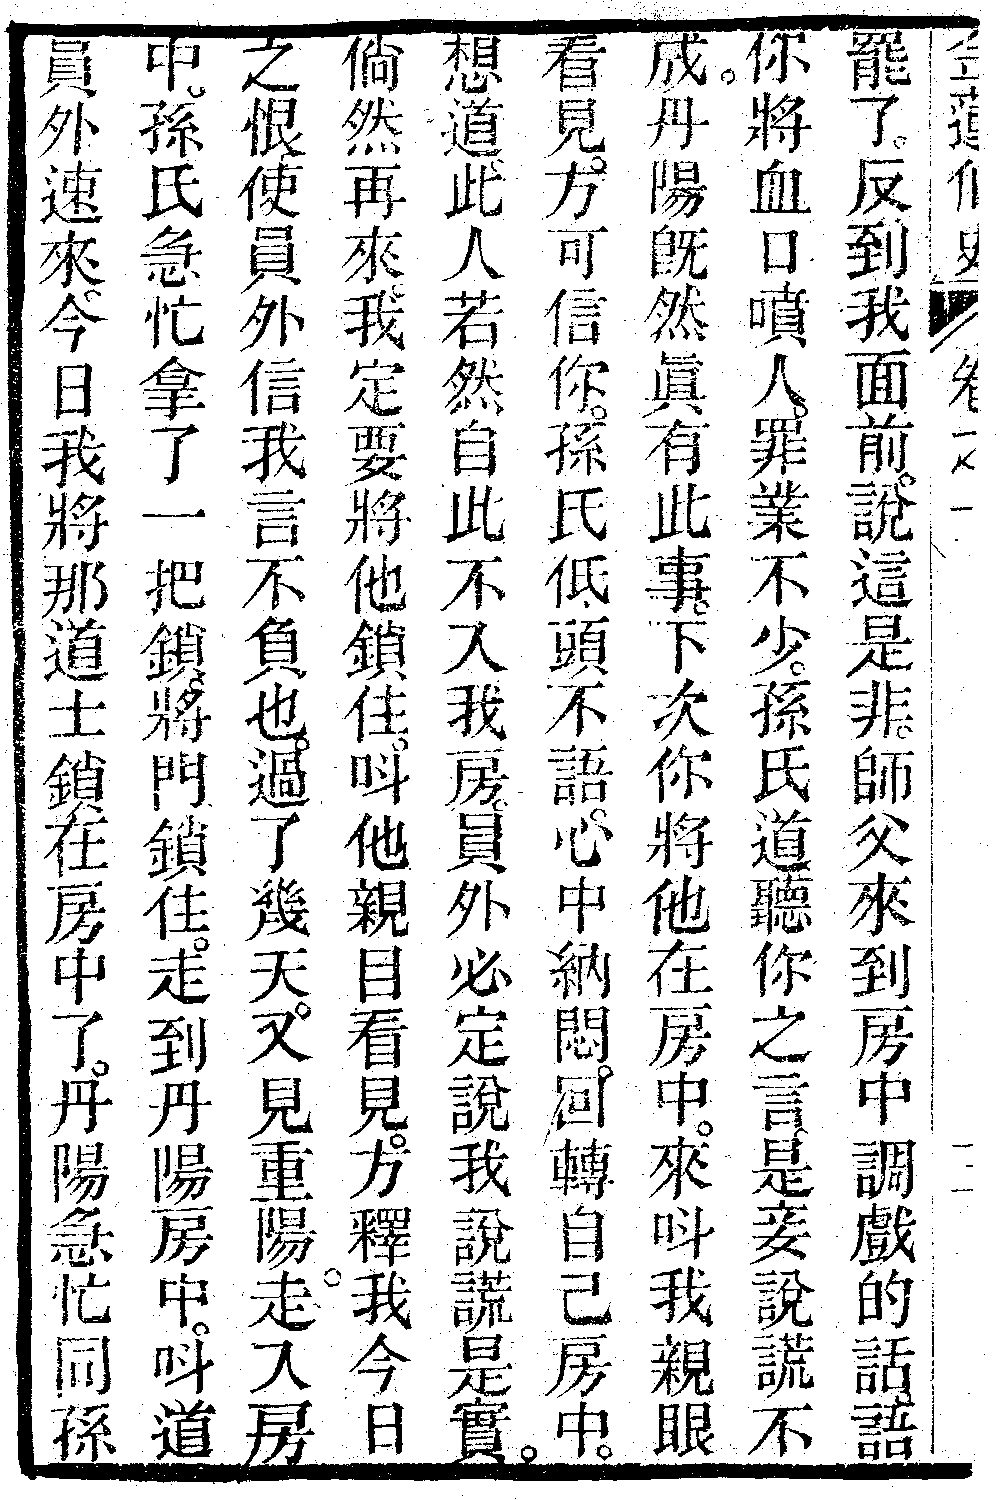 金蓮仙史 卷一 一
罷了。反到我面前。說這是非。師父來到房中調戲的話。語
你將血口噴人。罪業不少。孫氏道聽你之言是妾說謊不
成。丹陽旣然眞有此事。下次你將他在房中。來呌我親眼
看見。方可信你。孫氏低頭不語。心中納悶。回轉自己房中。
想道。此人若然自此不入我房。員外必定說我說謊是實。
倘然再來。我定要將他鎖住。呌他親目看見。方釋我今日
之恨使員外信我言不負也。過了幾天。又見重陽走入房
中。孫氏急忙拿了一把鎖。將門鎖住。走到丹陽房中。呌道
員外速來。今日我將那道士鎖在房中了。丹陽急忙同孫